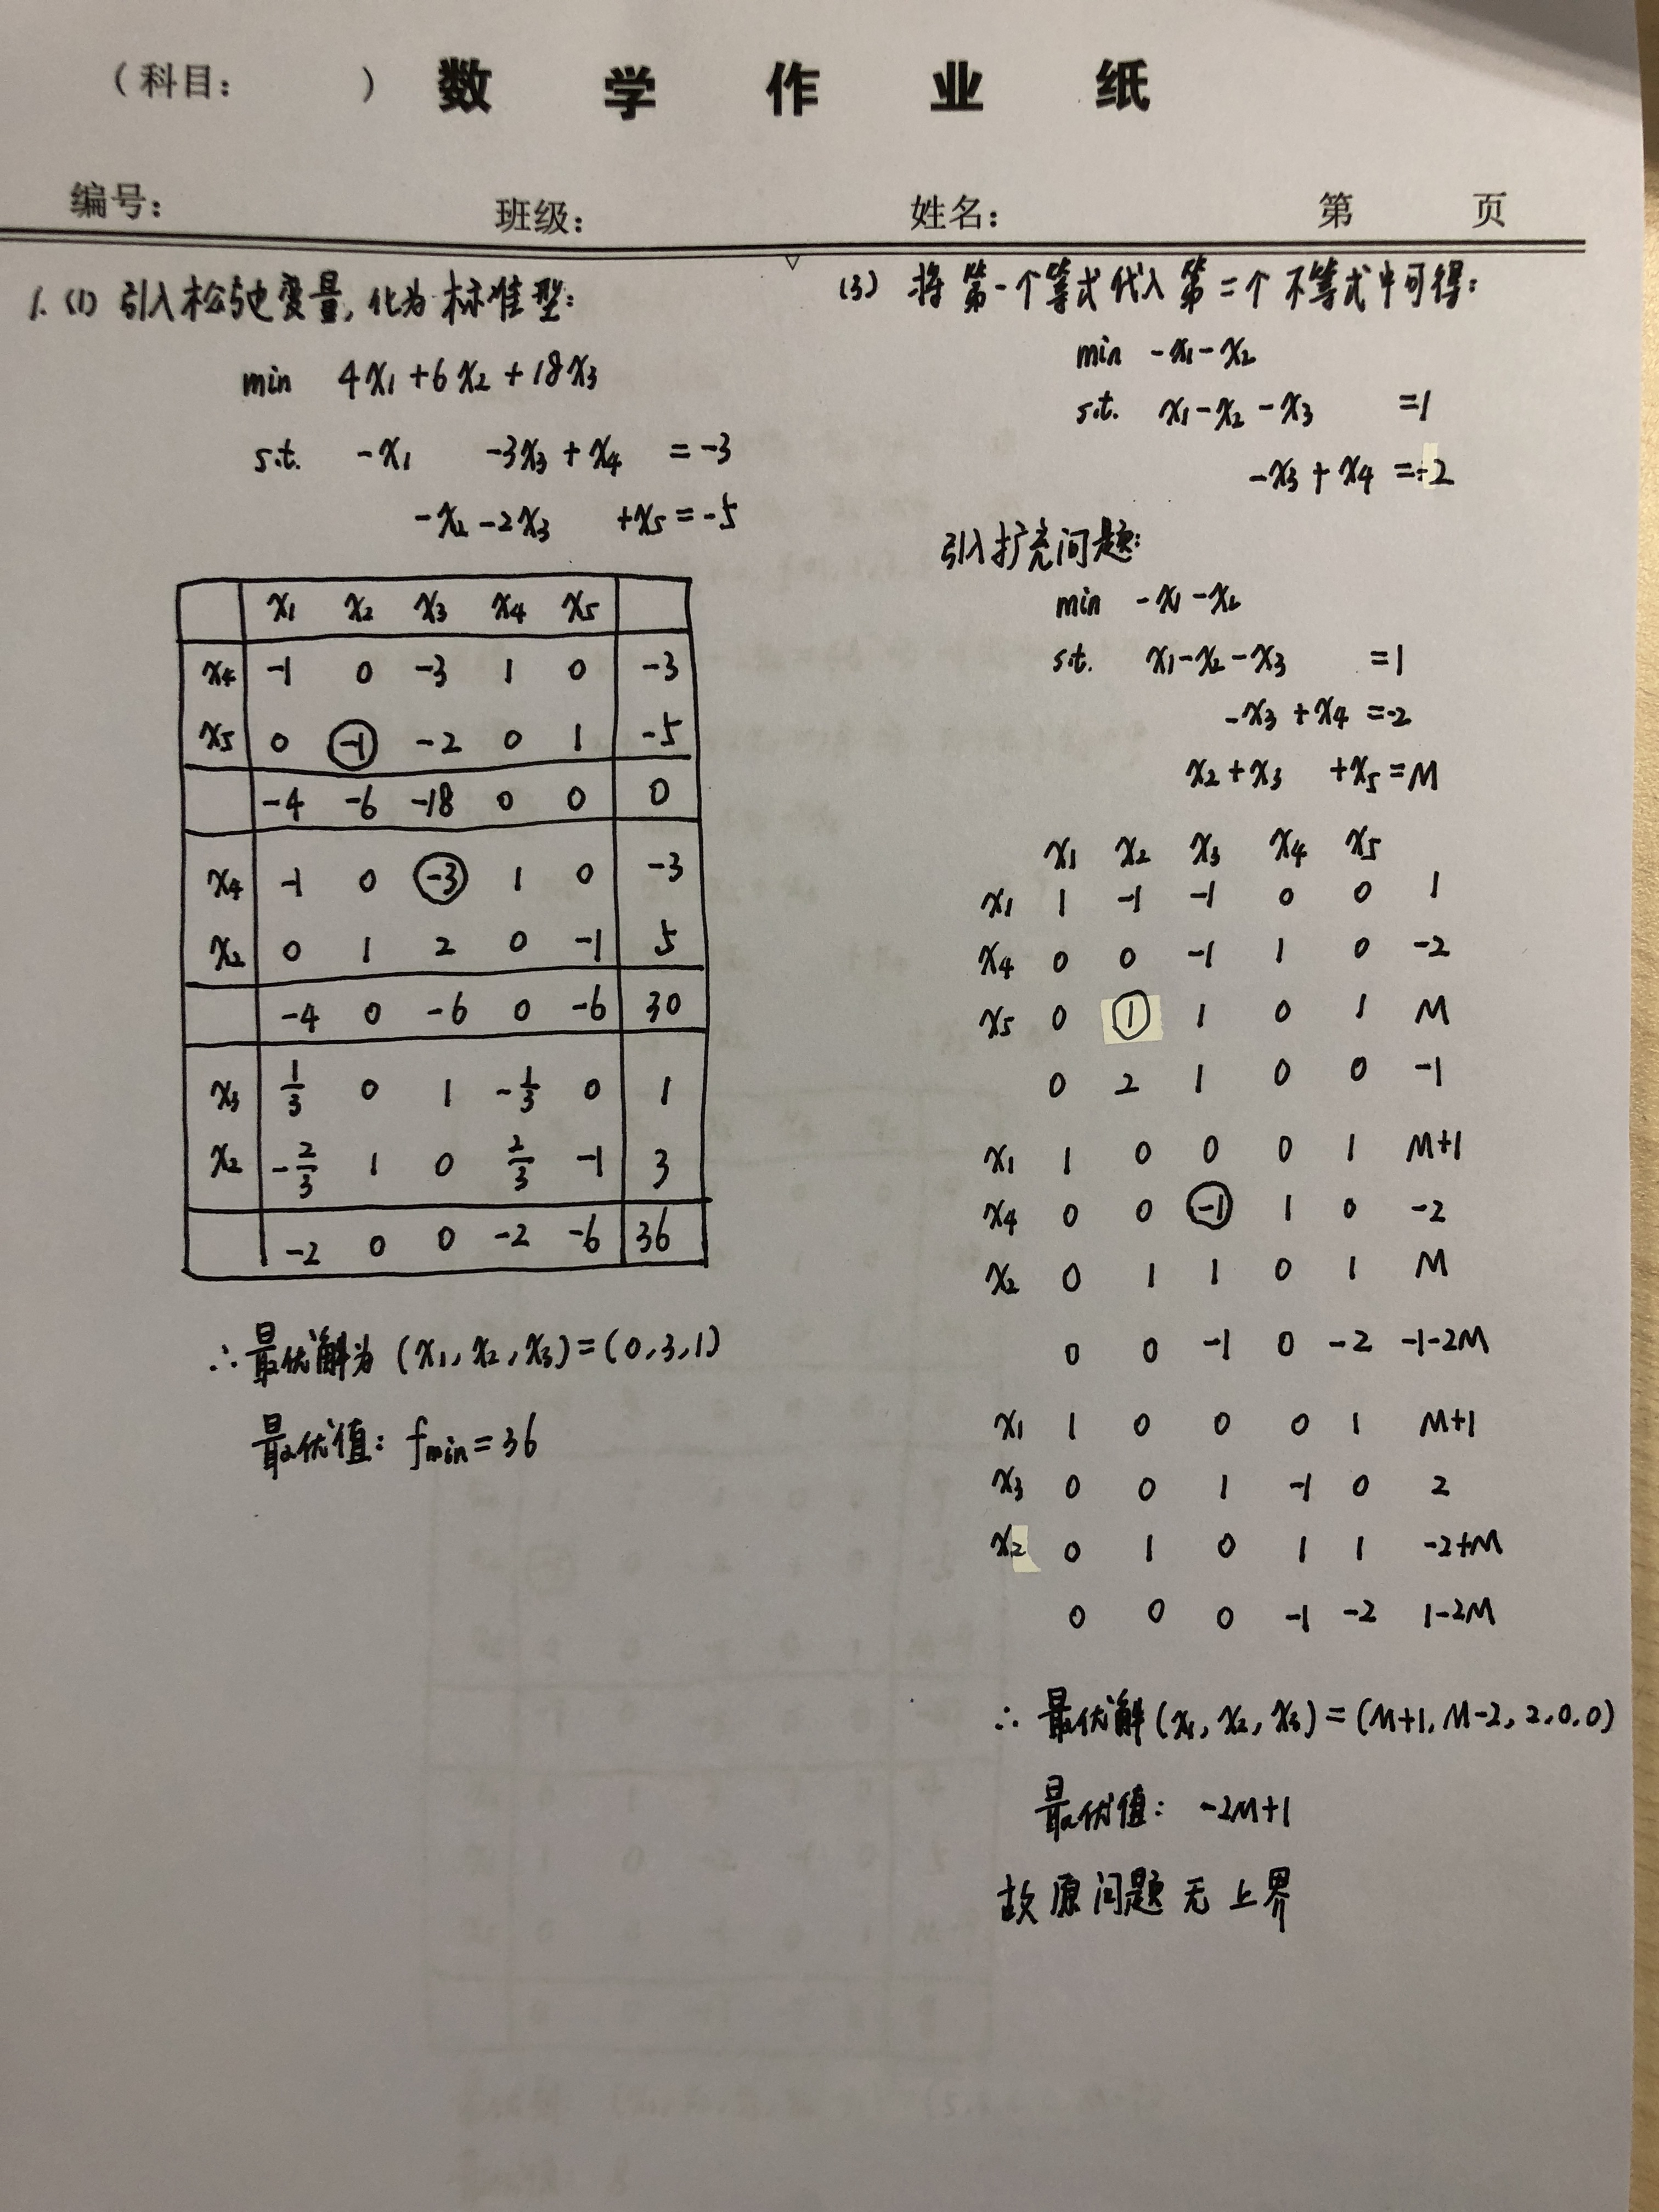 （科目：　　）数学作业纸
编号：　班级：　姓名：　第　页
1. (1) 引入松弛变量，化为标准型：
min 4x₁+6x₂+18x₃
s.t. -x₁ -3x₃+x₄ =-3
-x₂-2x₃ +x₅=-5
x₁ x₂ x₃ x₄ x₅
x₄ -1 0 -3 1 0 -3
x₅ 0 -1 -2 0 1 -5
-4 -6 -18 0 0 0
x₄ -1 0 -3 1 0 -3
x₂ 0 1 2 0 -1 5
-4 0 -6 0 -6 30
x₃ 1/3 0 1 -1/3 0 1
x₂ -2/3 1 0 2/3 -1 3
-2 0 0 -2 -6 36
∴ 最优解为 (x₁, x₂, x₃)=(0,3,1)
最优值： fmin=36
(3) 将第一个等式代入第二个不等式中可得：
min -x₁-x₂
s.t. x₁-x₂-x₃ =1
-x₃+x₄ =-2
引入扩充问题：
min -x₁-x₂
s.t. x₁-x₂-x₃ =1
-x₃+x₄=-2
x₂+x₃ +x₅=M
x₁ x₂ x₃ x₄ x₅
x₁ 1 -1 -1 0 0 1
x₄ 0 0 -1 1 0 -2
x₅ 0 1 1 0 1 M
0 2 1 0 0 -1
x₁ 1 0 0 0 1 M+1
x₄ 0 0 -1 1 0 -2
x₂ 0 1 1 0 1 M
0 0 -1 0 -2 -1-2M
x₁ 1 0 0 0 1 M+1
x₃ 0 0 1 -1 0 2
x₂ 0 1 0 1 1 -2+M
0 0 0 -1 -2 1-2M
∴ 最优解(x₁, x₂, x₃)=(M+1, M-2, 2,0,0)
最优值： -2M+1
故原问题无上界